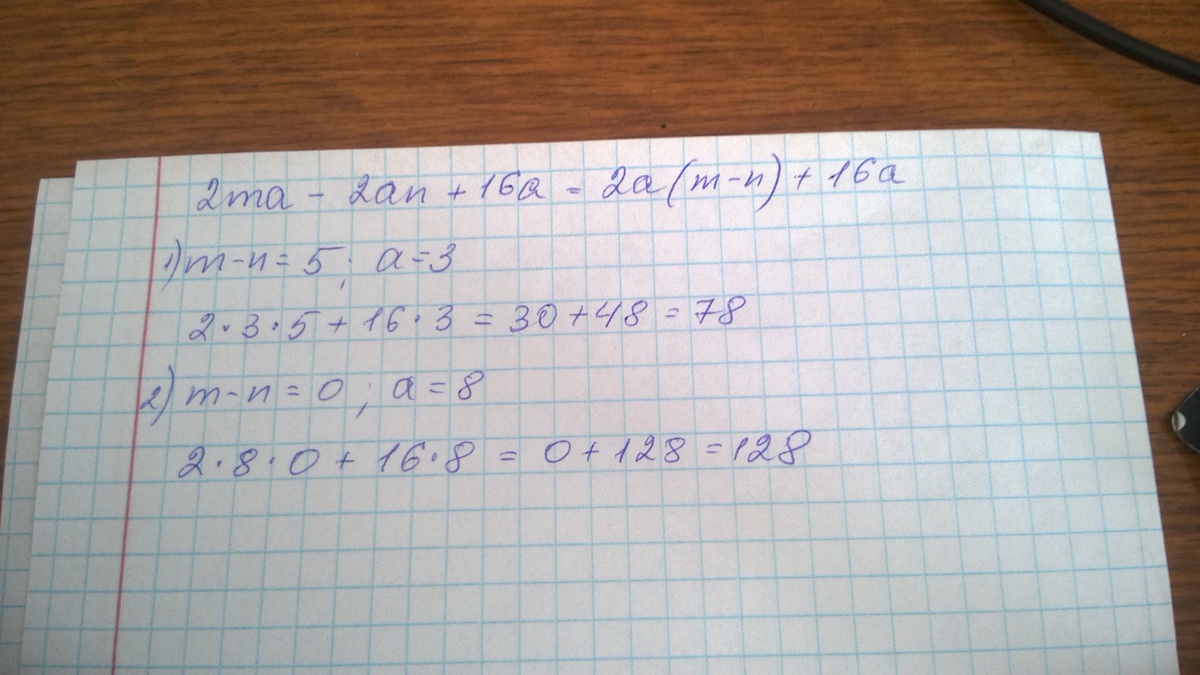 2ma - 2an + 16a = 2a(m-n) + 16a
1) m-n = 5; a=3
2·3·5 + 16·3 = 30+48 = 78
2) m-n = 0; a=8
2·8·0 + 16·8 = 0+128 = 128